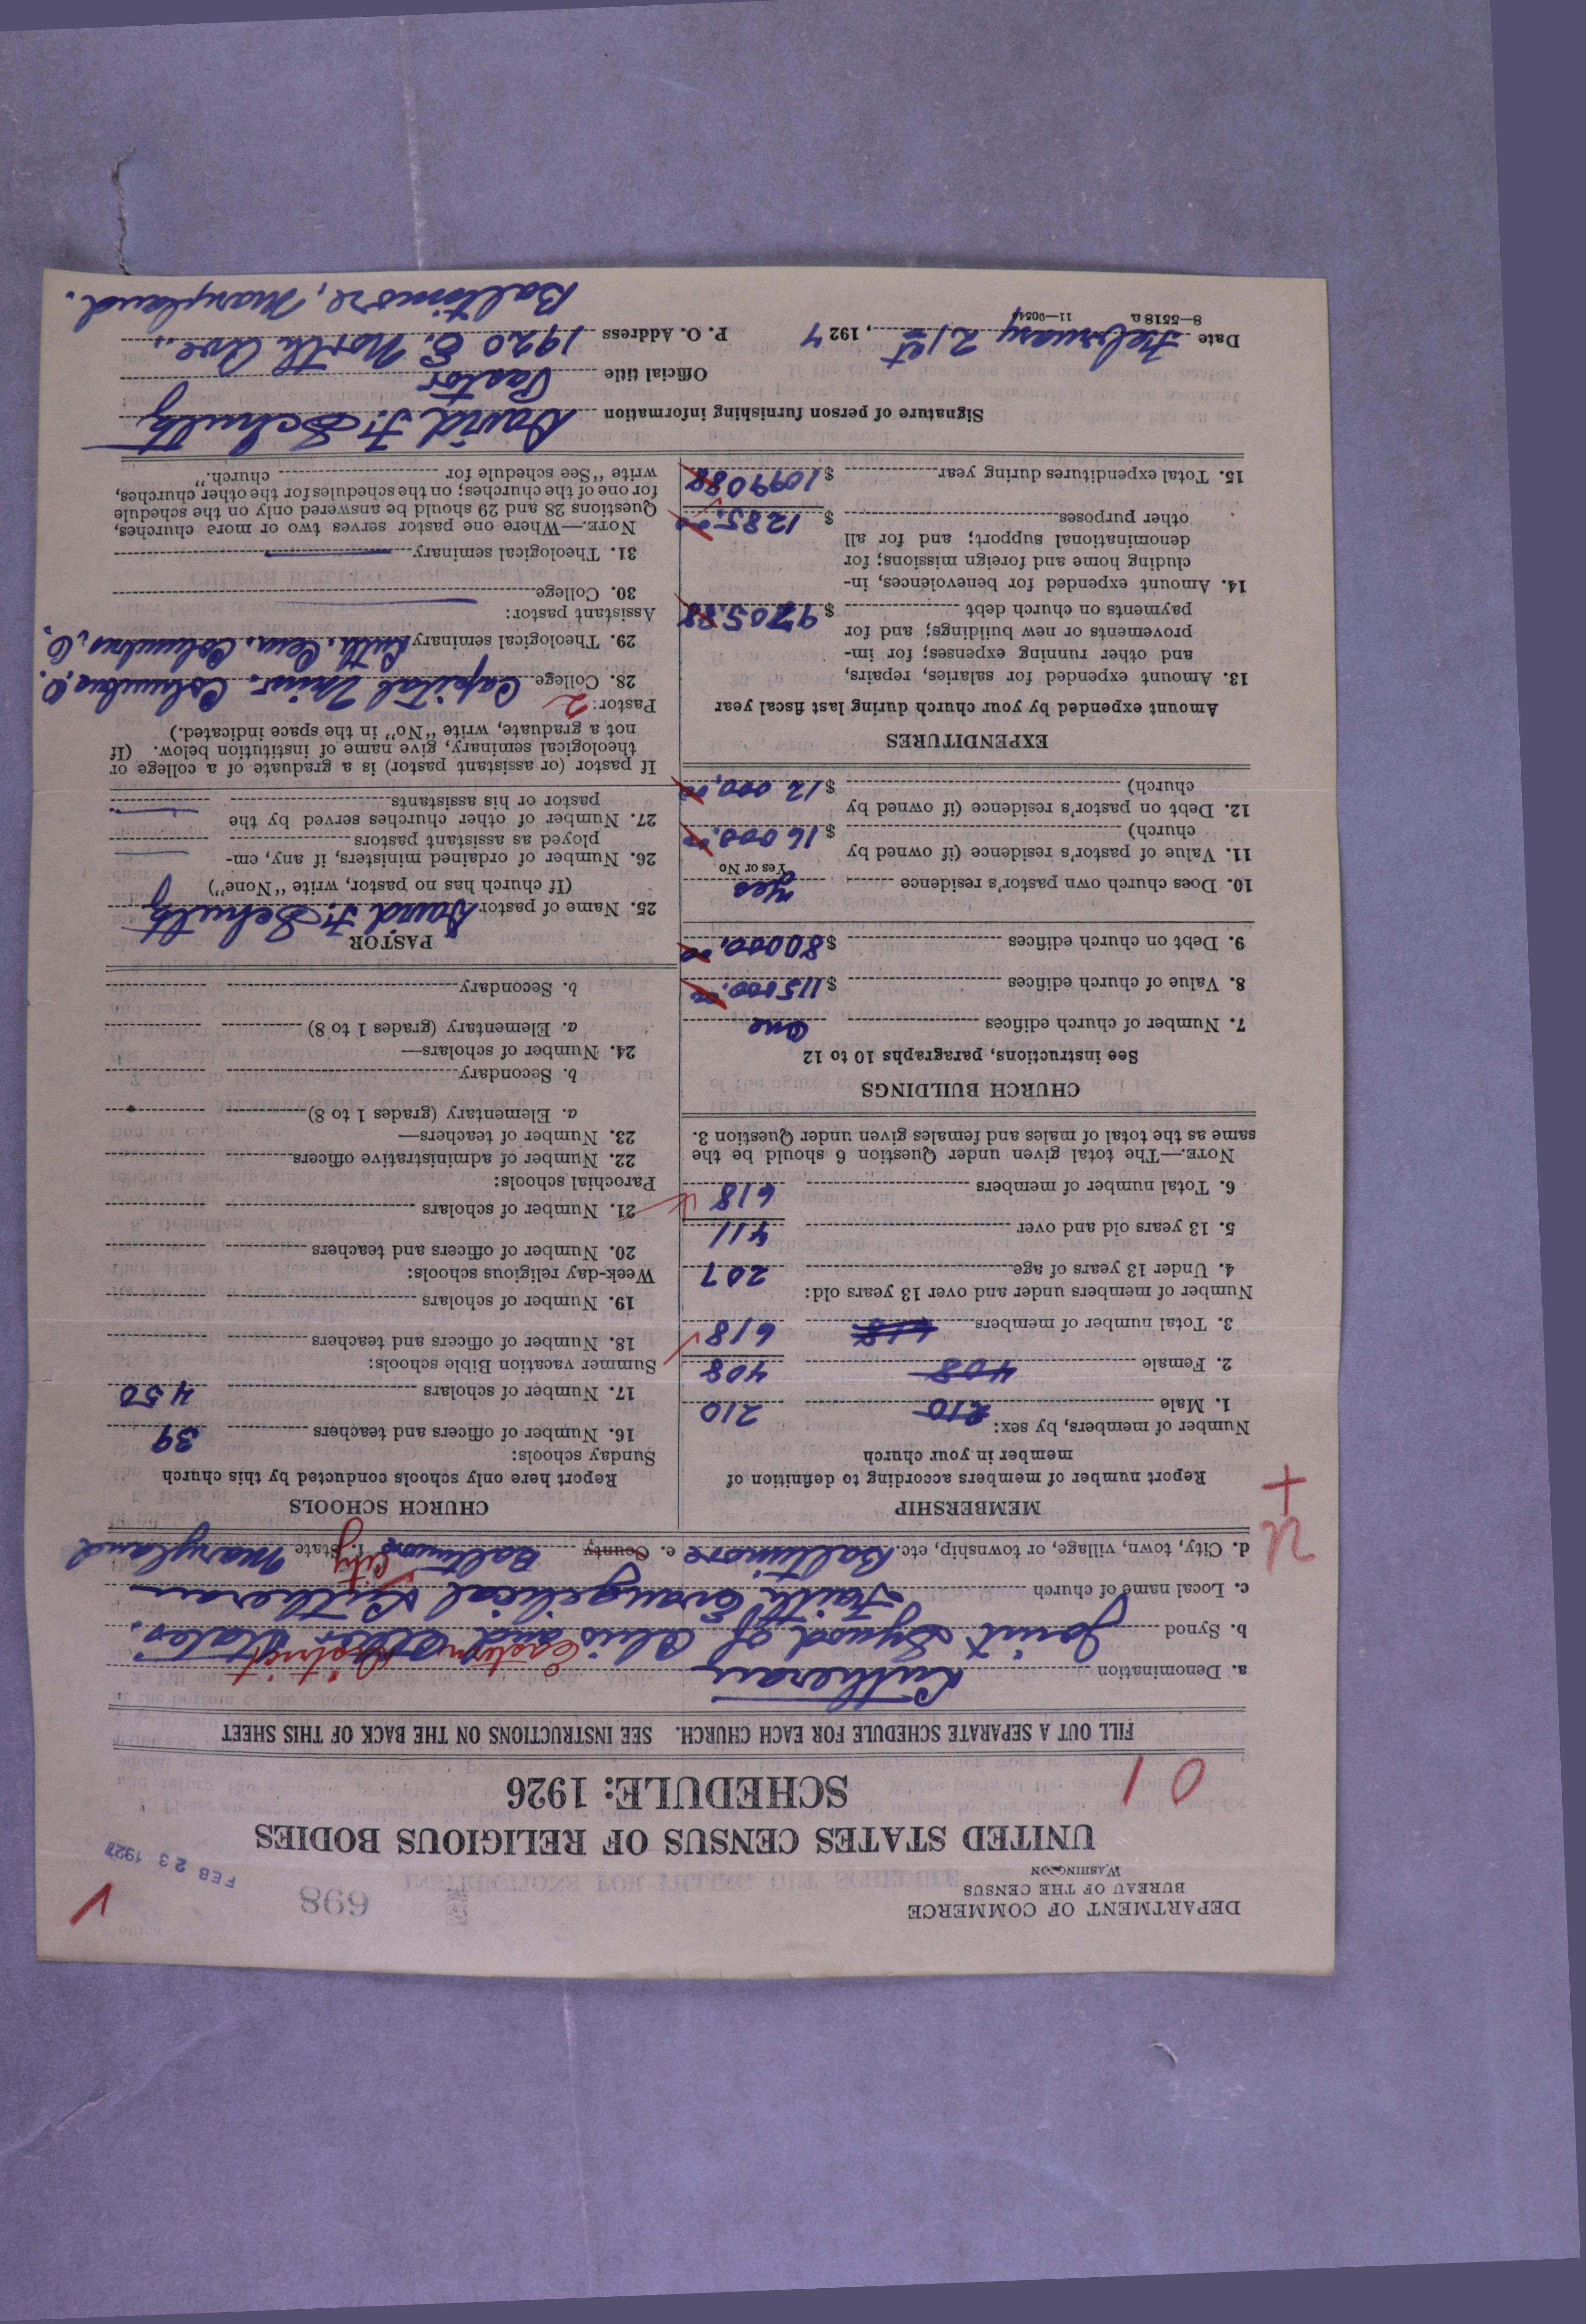 DEPARTMENT OF COMMERCE
BUREAU OF THE CENSUS
WASHINGTON
698
FEB 23 1927
UNITED STATES CENSUS OF RELIGIOUS BODIES
SCHEDULE: 1926
10
FILL OUT A SEPARATE SCHEDULE FOR EACH CHURCH. SEE INSTRUCTIONS ON THE BACK OF THIS SHEET
a. Denomination Lutheran
Eastern District
b. Synod Joint Synod of Ohio and Other States.
c. Local name of church Faith Evangelical Lutheran
d. City, town, village, or township, etc. Baltimore e. County Baltimore City f. State Maryland
MEMBERSHIP
Report number of members according to definition of
member in your church
Number of members, by sex:
1. Male 210 210
2. Female 408 408
3. Total number of members 618 618
Number of members under and over 13 years old:
4. Under 13 years of age 207
5. 13 years old and over 411
6. Total number of members 618
NOTE.—The total given under Question 6 should be the
same as the total of males and females given under Question 3.
CHURCH BUILDINGS
See instructions, paragraphs 10 to 12
7. Number of church edifices One
8. Value of church edifices $115000.00
9. Debt on church edifices $80000.00
10. Does church own pastor's residence Yes
Yes or No
11. Value of pastor's residence (if owned by
church) $16000.00
12. Debt on pastor's residence (if owned by
church) $12000.00
EXPENDITURES
Amount expended by your church during last fiscal year
13. Amount expended for salaries, repairs,
and other running expenses; for im-
provements or new buildings; and for
payments on church debt $9705.88
14. Amount expended for benevolences, in-
cluding home and foreign missions; for
denominational support; and for all
other purposes $1285.00
15. Total expenditures during year $1099088
CHURCH SCHOOLS
Report here only schools conducted by this church
Sunday schools:
16. Number of officers and teachers 39
17. Number of scholars 450
Summer vacation Bible schools:
18. Number of officers and teachers
19. Number of scholars
Week-day religious schools:
20. Number of officers and teachers
21. Number of scholars
Parochial schools:
22. Number of administrative officers
23. Number of teachers—
a. Elementary (grades 1 to 8)
b. Secondary
24. Number of scholars—
a. Elementary (grades 1 to 8)
b. Secondary
PASTOR
25. Name of pastor David F. Schultz
(If church has no pastor, write "None")
26. Number of ordained ministers, if any, em-
ployed as assistant pastors
27. Number of other churches served by the
pastor or his assistants
If pastor (or assistant pastor) is a graduate of a college or
theological seminary, give name of institution below. (If
not a graduate, write "No" in the space indicated.)
Pastor: 2
28. College Capital Univ. Columbus, O.
29. Theological seminary Luth. Sem. Columbus, O.
Assistant pastor:
30. College
31. Theological seminary
NOTE.—Where one pastor serves two or more churches,
Questions 28 and 29 should be answered only on the schedule
for one of the churches; on the schedules for the other churches,
write "See schedule for church."
Signature of person furnishing information David F. Schultz
Official title Pastor
Date February 21st, 1927 P. O. Address 1920 E. North Ave.,
8—5518 a 11—9054
Baltimore, Maryland.